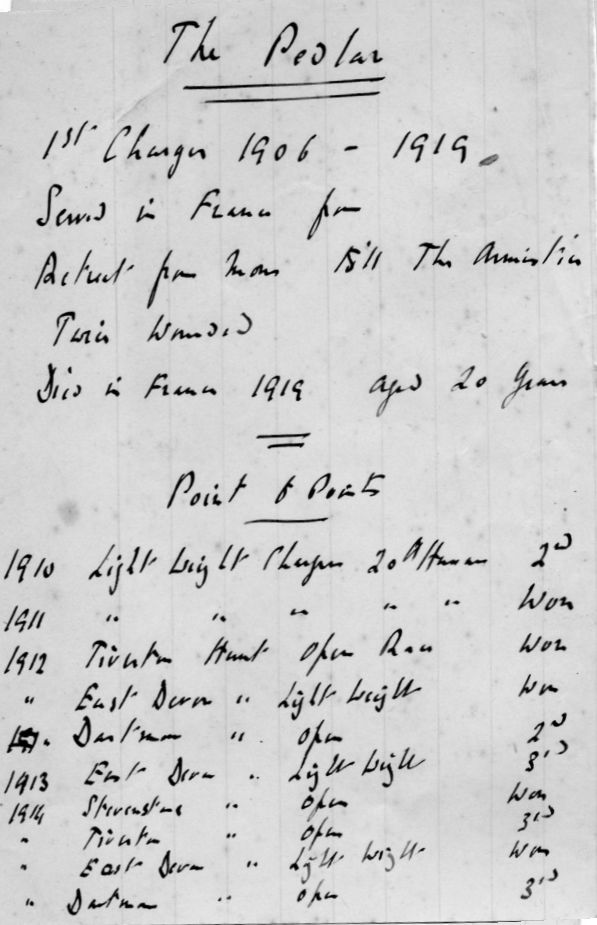 The Pedlar
1st Charger 1906 - 1919.
Served in France from
Retreat from Mons till The Armistice
Twice Wounded
Died in France 1919 aged 20 years
Point to Points
1910 Light Weight Chargers 20th Hussars 2nd
1911 " " " " " Won
1912 Tiverton Hunt Open Race Won
" East Devon " Light Weight Won
" Dartmoor " Open 2nd
1913 East Devon " Light Weight 3rd
1914 Stevenstone " Open Won
" Tiverton " Open 3rd
" East Devon " Light Weight Won
" Dartmoor " Open 3rd